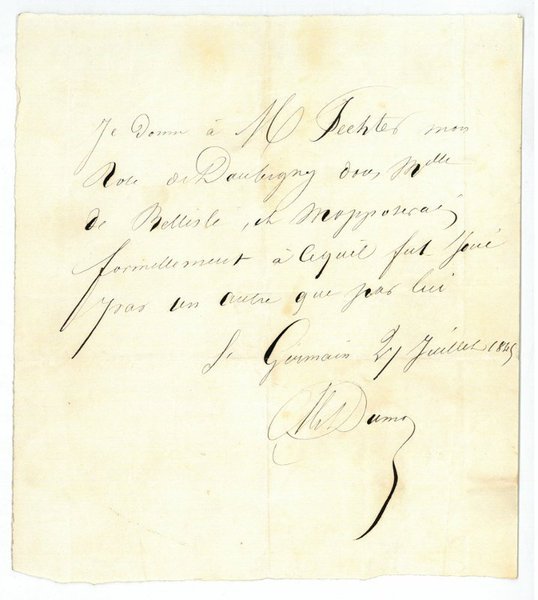 Je donne à M Fechter mon
Role de Daubigny dans Melle
de Bellisle, et mopposerai
formellement à cequil fut joué
par un autre que par lui
St Germain 27 Juillet 1845
Al Dumas